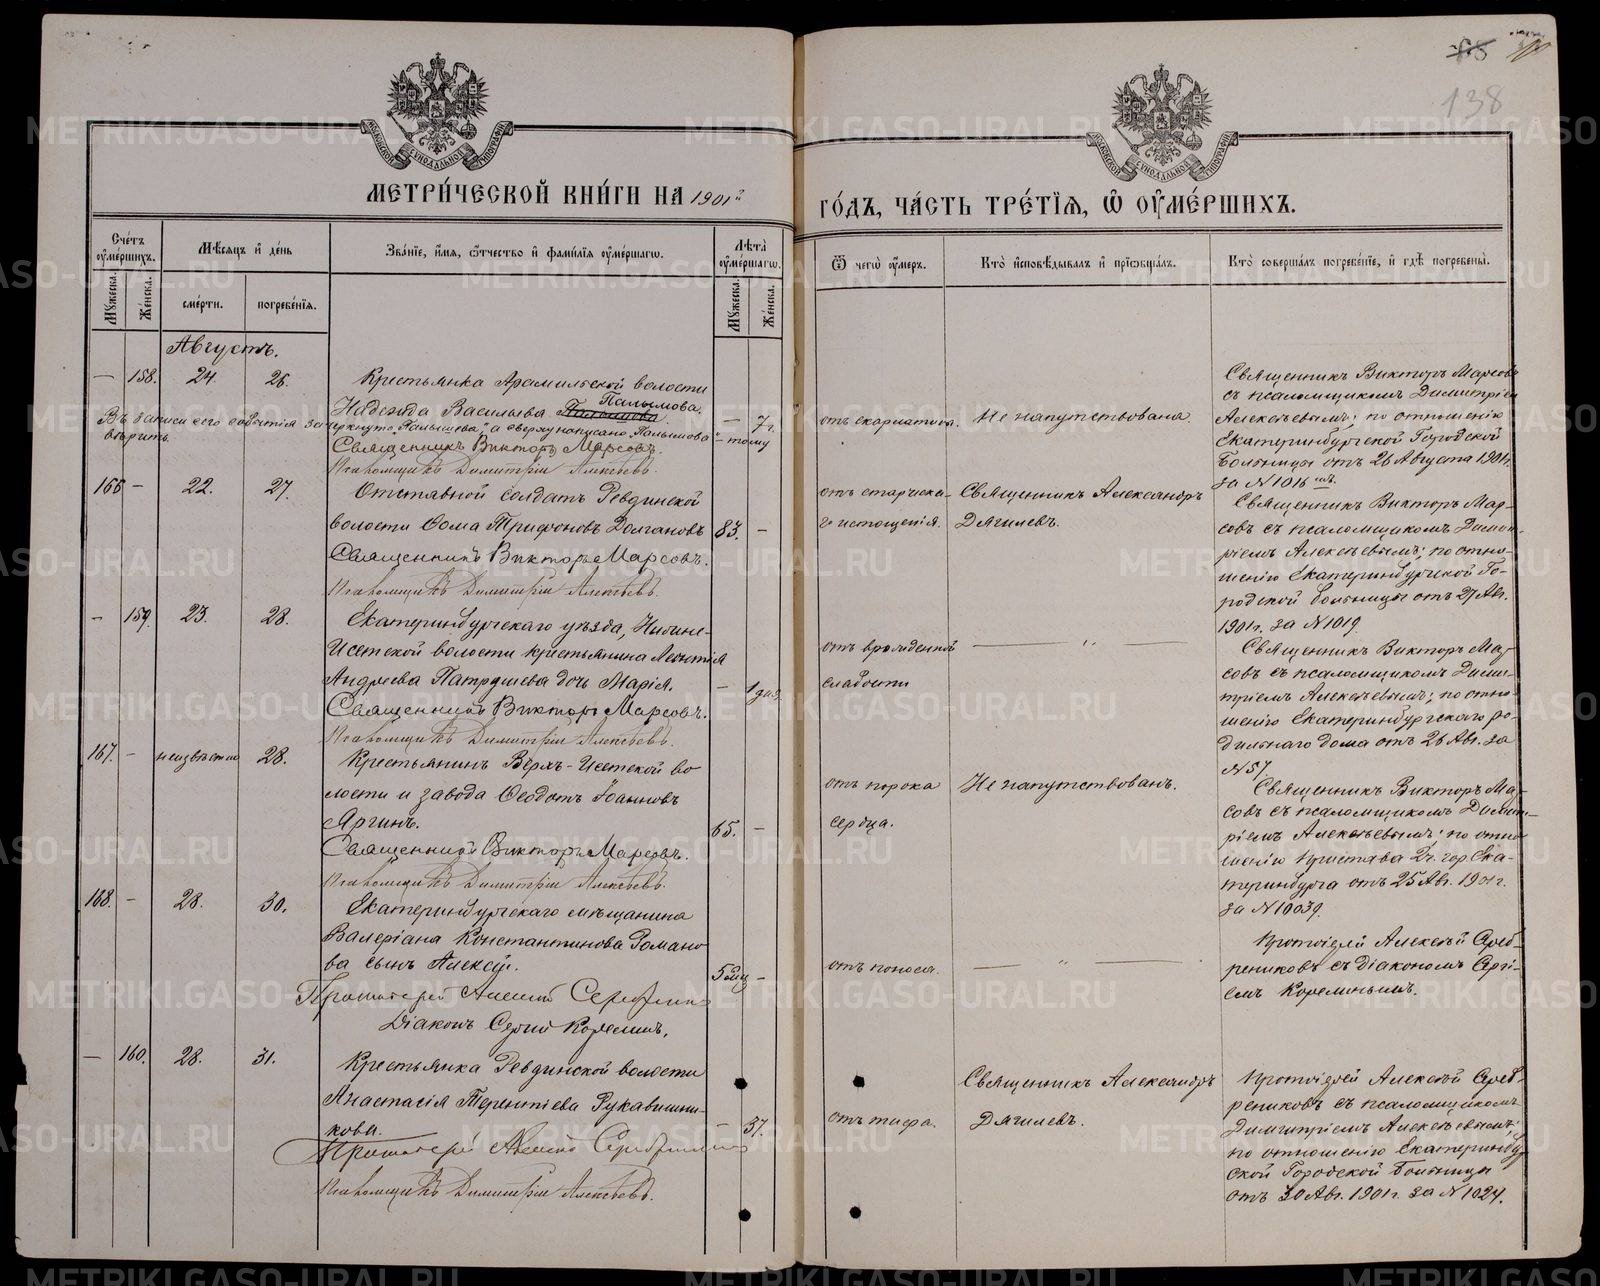 138
МЕТРИ́ЧЕСКОЙ КНИ́ГИ НА 1901й
ГО́ДЪ, ЧА́СТЬ ТРЕ́ТIѦ, Ѡ ОУ҆МЕ́РШИХЪ.
Сче́тъ оу҆ме́ршихъ.
Мѣ́сяцъ и҆ де́нь
Зва́нїе, и҆́мя, ѻ҆́тчество и҆ фами́лїя оу҆ме́ршагѡ.
Лѣ́та оу҆ме́ршагѡ.
Мꙋ́жеска.
Же́нска.
сме́рти.
погребе́нїѧ.
Мꙋ́жеска.
Же́нска.
Ѿ чегѡ̀ оу҆́меръ.
Кто̀ и҆сповѣ́дывалъ и҆ прїѡбща́лъ.
Кто̀ соверша́лъ погребе́нїе, и҆ гдѣ̀ погребены̀.
Августъ.
— 158. 24. 26.
Крестьянка Арамильской волости
Палымова.
Надежда Васильева
— 7 г.
Въ записи сего события зачеркнуто „Палышева" а сверху написано „Палымова"
вѣрить.
Священникъ Викторъ Марсовъ.
Псаломщикъ Димитрій Алексѣевъ.
отъ скарлатины.
Не напутствована.
Священникъ Викторъ Марсовъ
съ псаломщикомъ Димитріемъ
Алексѣевымъ; по отношенію
Екатеринбургской Городской
Больницы отъ 26 Августа 1901 г.
за N 1016
166 — 22. 27.
Отставной солдатъ Ревдинской
волости Ѳома Трифоновъ Долгановъ
83. —
Священникъ Викторъ Марсовъ.
Псаломщикъ Димитрій Алексѣевъ.
отъ старческа-
го истощенія.
Священникъ Александръ
Дягилевъ.
Священникъ Викторъ Мар-
совъ съ псаломщикомъ Димит-
ріемъ Алексѣевымъ; по отно-
шенію Екатеринбургской Го-
родской больницы отъ 27 Авг.
1901 г. за N 1019.
- 159. 23. 28.
Екатеринбургскаго уѣзда, Нижне-
Исетской волости крестьянина Леонтія
Андреева Патрушева дочь Марія.
— 1 дня
Священникъ Викторъ Марсовъ.
Псаломщикъ Димитрій Алексѣевъ.
отъ врожденной
слабости
— „ —
Священникъ Викторъ Мар-
совъ съ псаломщикомъ Дими-
тріемъ Алексѣевымъ; по отно-
шенію Екатеринбургскаго ро-
дильнаго дома отъ 26 Авг. за
N 57
167. — неизвѣстно 28.
Крестьянинъ Верхъ-Исетской во-
лости и завода Ѳеодотъ Іоанновъ
Яргинъ.
65. —
Священникъ Викторъ Марсовъ.
Псаломщикъ Димитрій Алексѣевъ.
отъ порока
сердца.
Не напутствованъ.
Священникъ Викторъ Мар-
совъ съ псаломщикомъ Димит-
ріемъ Алексѣевымъ; по отно-
шенію Пристава 2 ч. гор. Ека-
теринбурга отъ 25 Авг. 1901 г.
за N 10039.
168. — 28. 30.
Екатеринбургскаго мѣщанина
Валеріана Константинова Романо-
ва сынъ Алексій.
5 мц —
Протоіерей Алексій Серебрениковъ
Діаконъ Сергій Кореминъ.
отъ поноса.
— „ —
Протоіерей Алексѣй Сереб-
рениковъ съ діакономъ Серги-
емъ Кореминымъ.
— 160. 28. 31.
Крестьянка Ревдинской волости
Анастасія Терентіева Рукавишни-
кова.
— 37.
Протоіерей Алексій Серебрениковъ
Псаломщикъ Димитрій Алексѣевъ.
отъ тифа.
Священникъ Александръ
Дягилевъ.
Протоіерей Алексѣй Сереб-
рениковъ съ псаломщикомъ
Димитріемъ Алексѣевымъ;
по отношенію Екатеринбург-
ской Городской больницы
отъ 30 Авг. 1901 г. за N 1024.